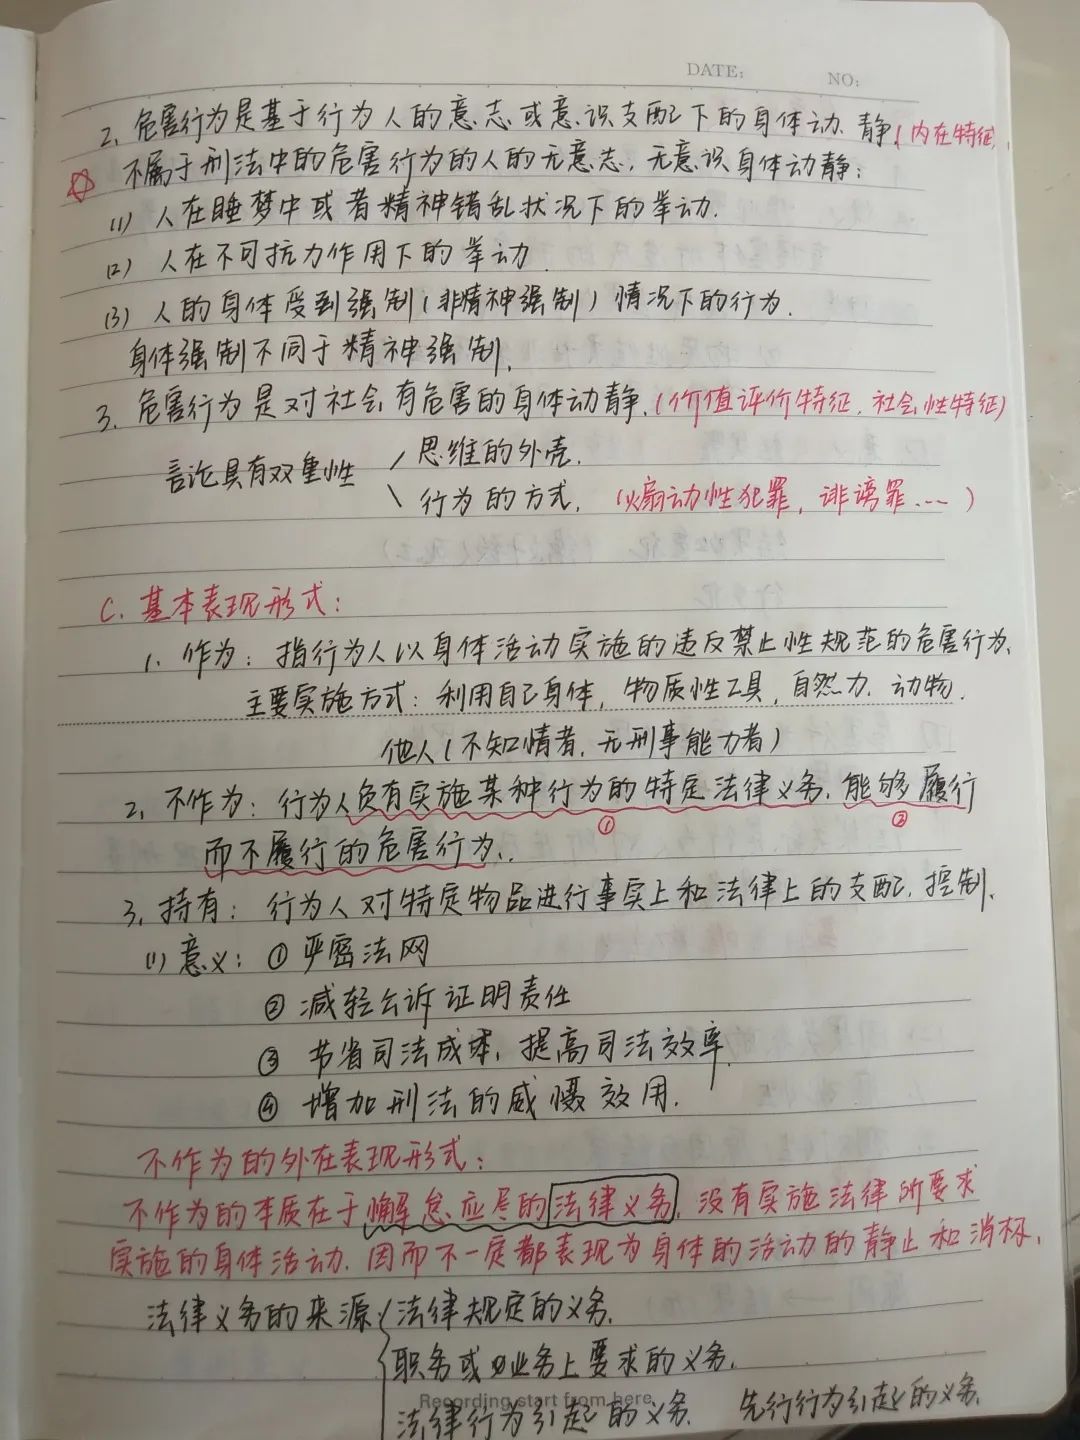 DATE: NO:
2. 危害行为是基于行为人的意志或意识支配下的身体动、静(内在特征).
不属于刑法中的危害行为的人的无意志,无意识身体动静:
(1) 人在睡梦中或者精神错乱状况下的举动.
(2) 人在不可抗力作用下的举动.
(3) 人的身体受到强制(非精神强制)情况下的行为.
身体强制不同于精神强制.
3. 危害行为是对社会有危害的身体动静.(价值评价特征.社会性特征)
思维的外壳.
言论具有双重性
行为的方式. (煽动性犯罪, 诽谤罪...)
C. 基本表现形式:
1. 作为: 指行为人以身体活动实施的违反禁止性规范的危害行为.
主要实施方式: 利用自己身体, 物质性工具, 自然力. 动物.
他人(不知情者.无刑事能力者)
2. 不作为: 行为人负有实施某种行为的特定法律义务.能够履行
① ②
而不履行的危害行为.
3. 持有: 行为人对特定物品进行事实上和法律上的支配.控制.
(1) 意义: ① 严密法网
② 减轻公诉证明责任
③ 节省司法成本, 提高司法效率.
④ 增加刑法的威慑效用.
不作为的外在表现形式:
不作为的本质在于懈怠应尽的法律义务.没有实施法律所要求
实施的身体活动.因而不一定都表现为身体的活动的静止和消极.
法律义务的来源 法律规定的义务.
职务或业务上要求的义务.
Recording start from here
法律行为引起的义务. 先行行为引起的义务.